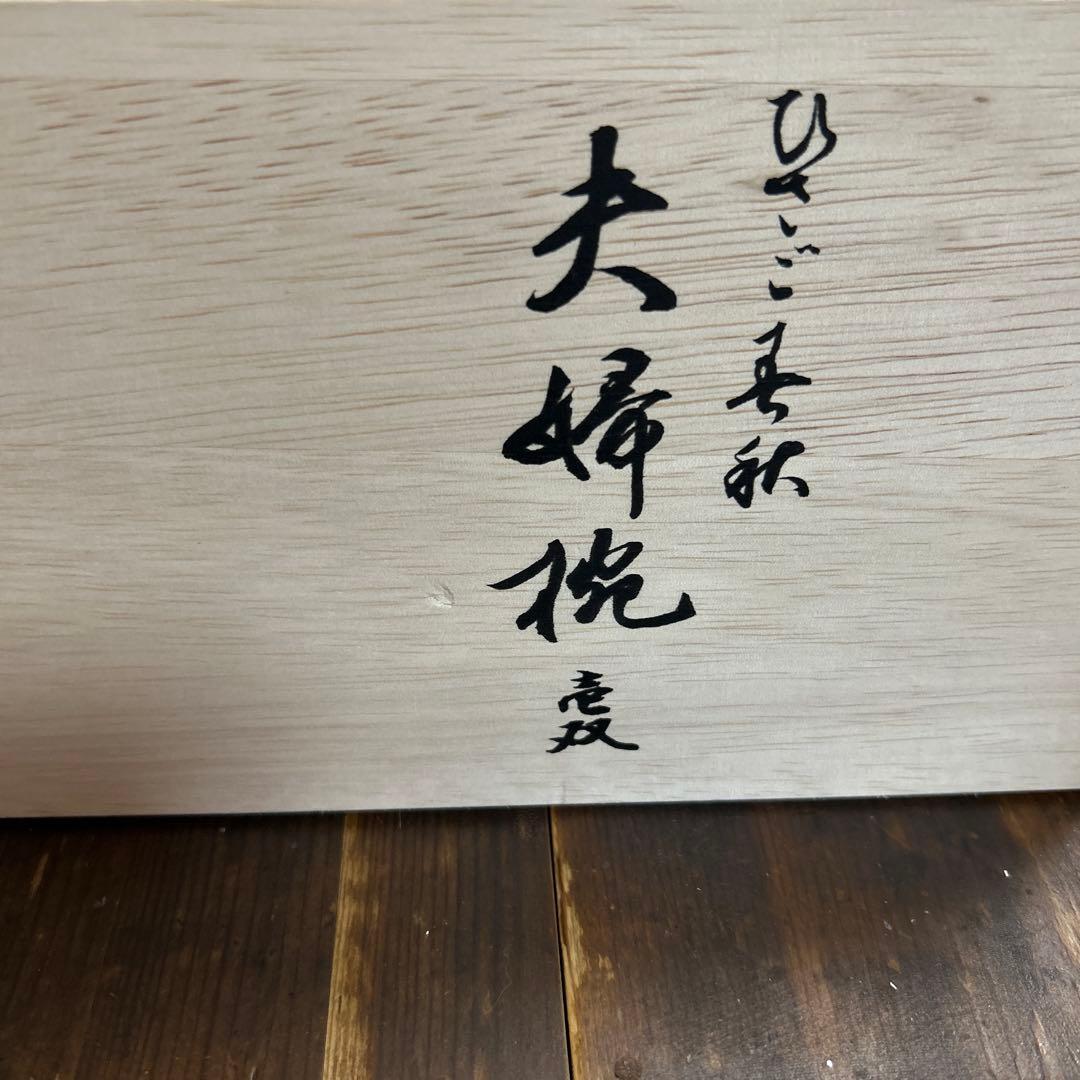 ひさご春秋
夫婦椀 壱双